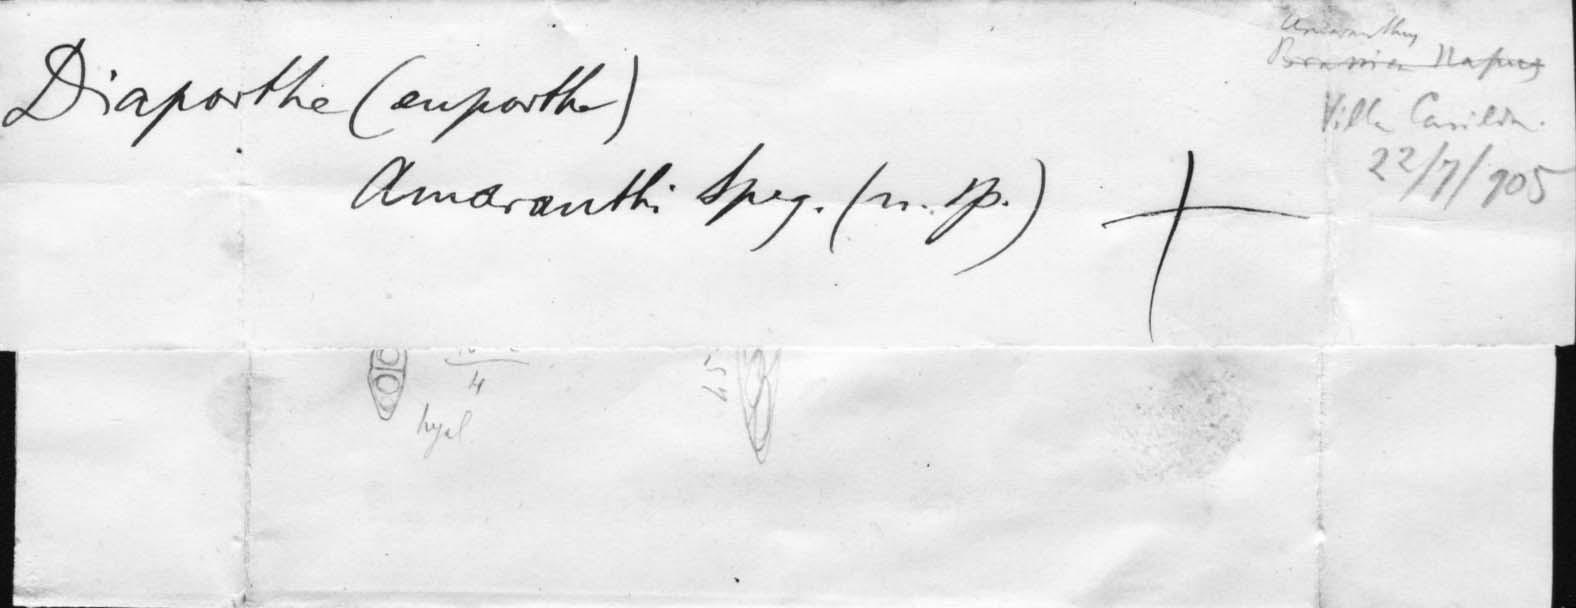 Diaporthe (euporthe)
Amaranthi Speg. (n. sp.)
Amaranthus
Brassica Napus
Villa Casilda.
22/7/905
4
hyal
45